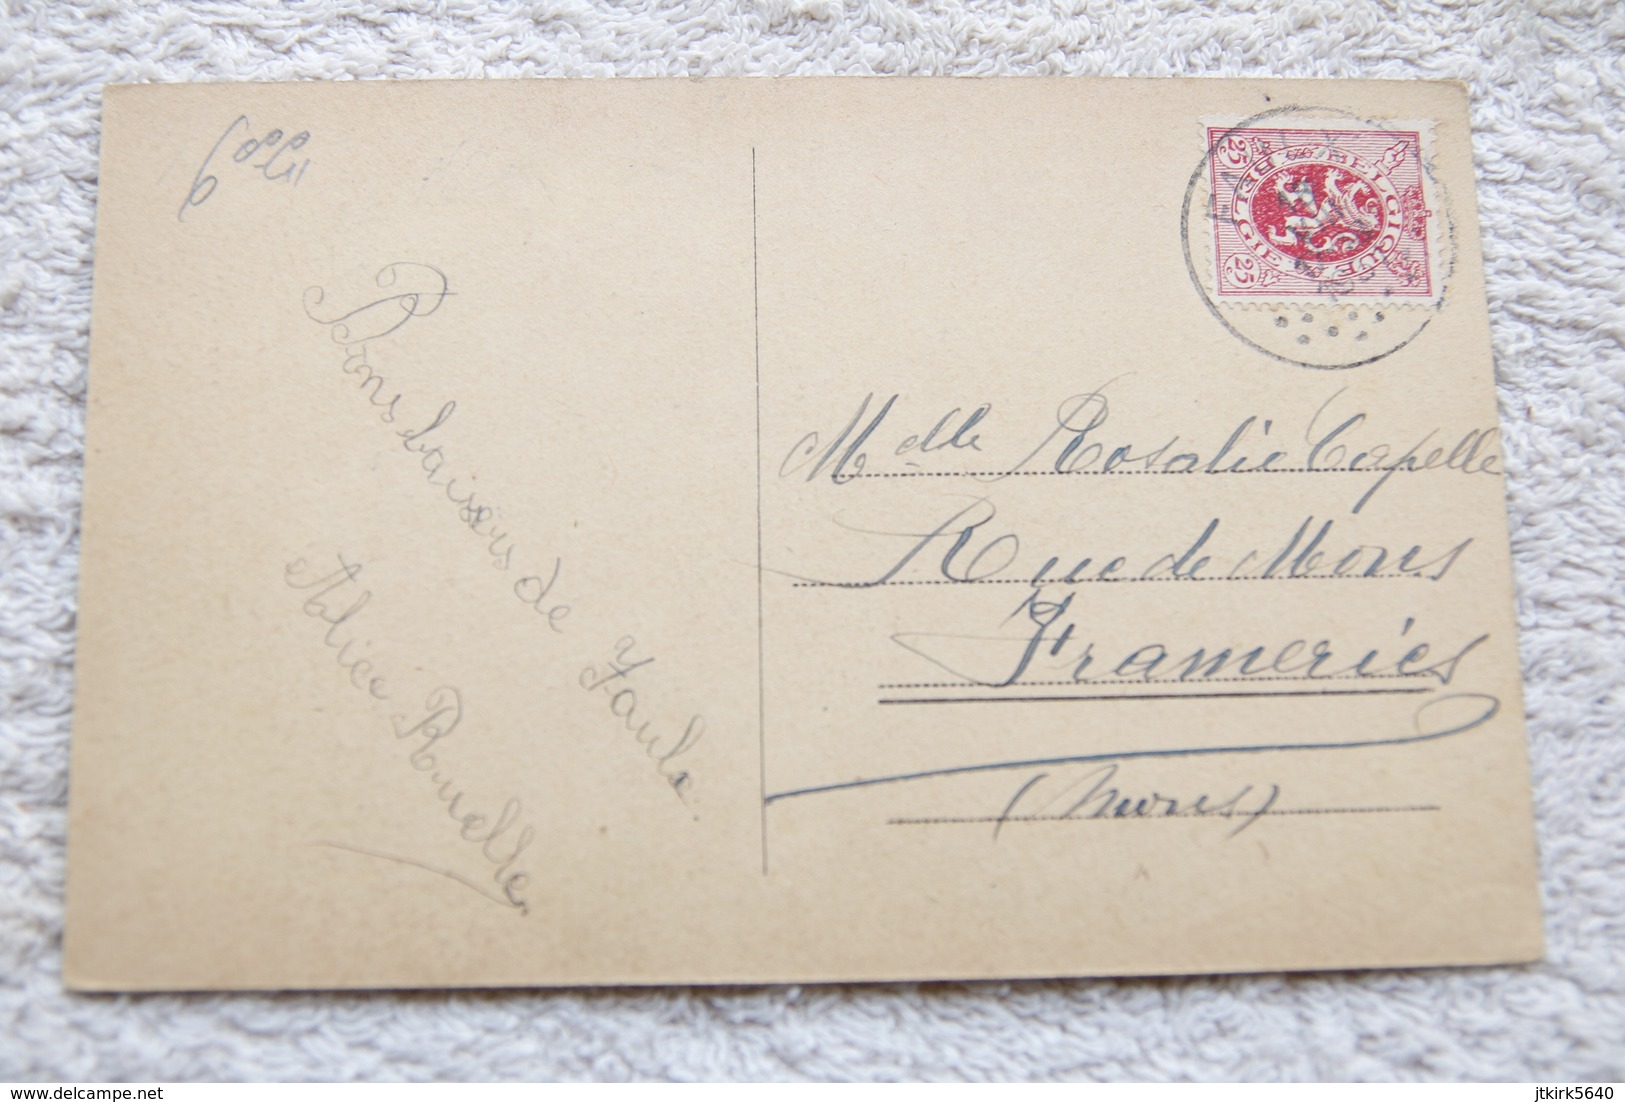 Bons baisers de
Paula
Alice Rouelle
BELGIQUE
BELGIE
25
25
Mdelle Rosalie Capelle
Rue de Mons
Frameries
(Mons)
delcampe.net
jtkirk5640